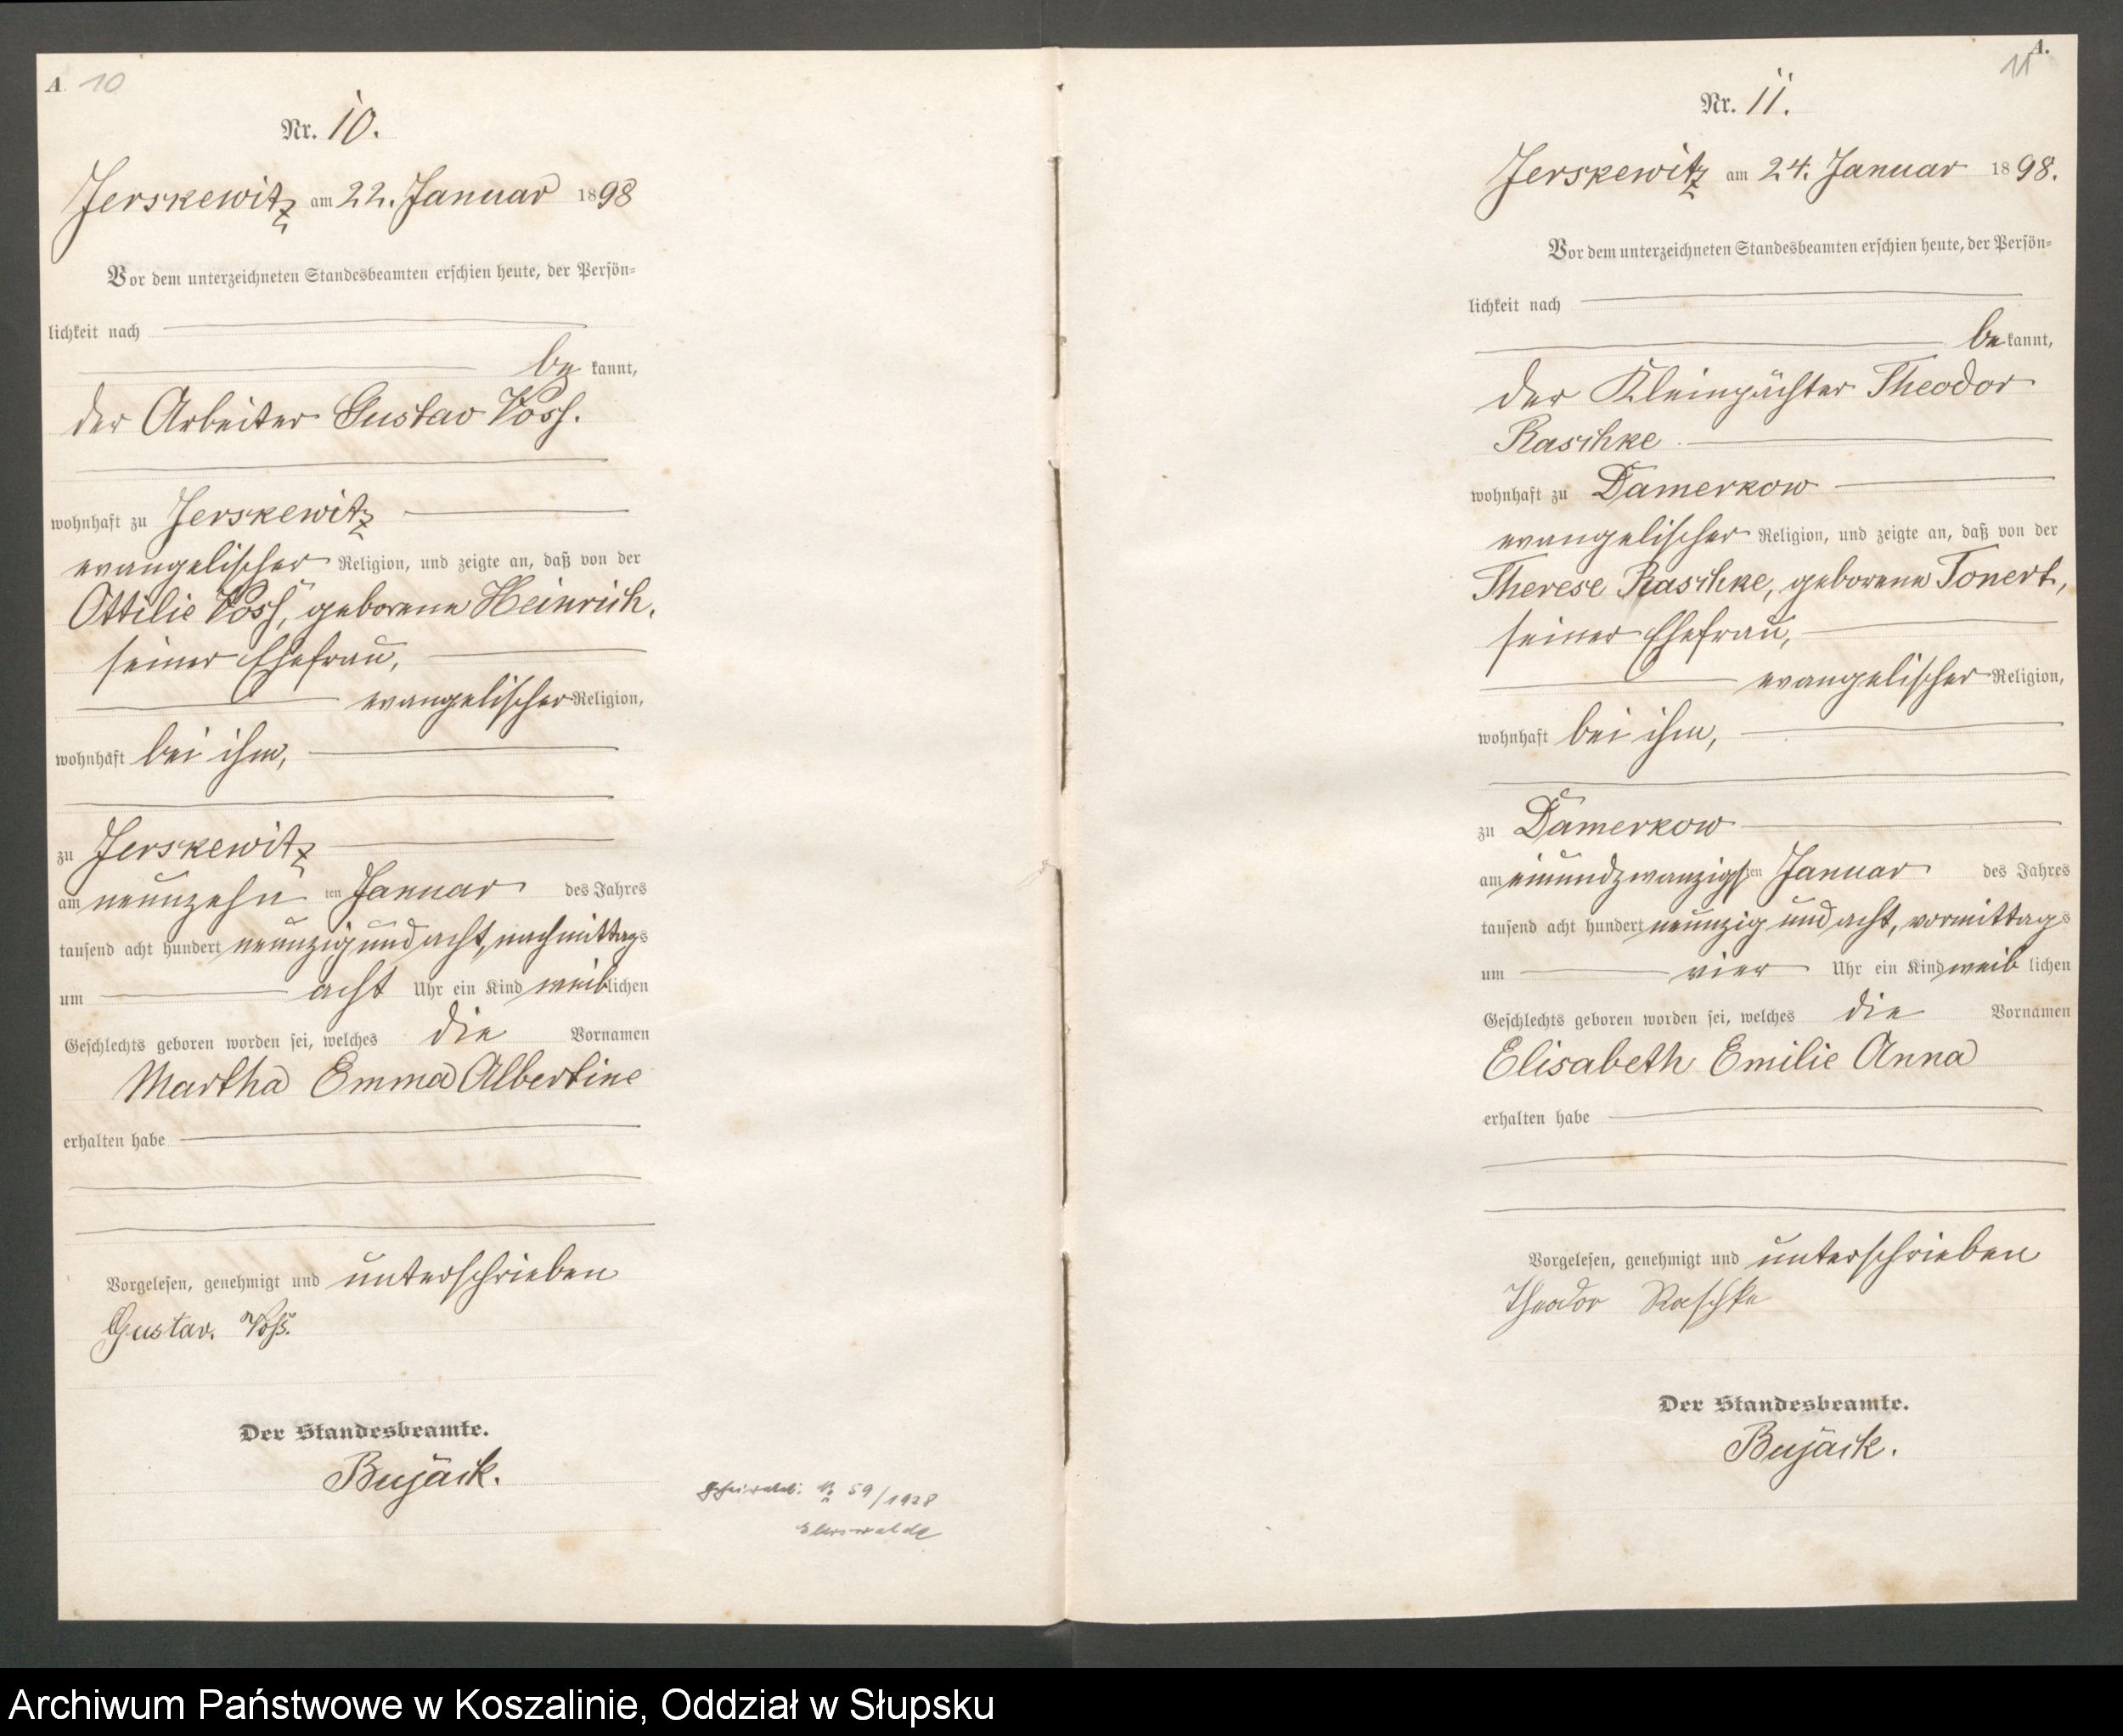 A 10
Nr. 10.
Jerskewitz am 22. Januar 1898
Vor dem unterzeichneten Standesbeamten erschien heute, der Persön=
lichkeit nach
be kannt,
der Arbeiter Gustav Voss.
wohnhaft zu Jerskewitz
evangelischer Religion, und zeigte an, daß von der
Ottilie Voss, geborene Heinrich,
seiner Ehefrau,
evangelischer Religion,
wohnhaft bei ihm,
zu Jerskewitz
am neunzehn ten Januar des Jahres
tausend acht hundert neunzig und acht, nachmittags
um acht Uhr ein Kind weiblichen
Geschlechts geboren worden sei, welches die Vornamen
Martha Emma Albertine
erhalten habe
Vorgelesen, genehmigt und unterschrieben
Gustav. Voß.
Der Standesbeamte.
Bujack.
59/1928
Eberswalde
A.
11
Nr. 11.
Jerskewitz am 24. Januar 1898.
Vor dem unterzeichneten Standesbeamten erschien heute, der Persön=
lichkeit nach
be kannt,
der Kleinpächter Theodor
Raschke
wohnhaft zu Damerkow
evangelischer Religion, und zeigte an, daß von der
Therese Raschke, geborene Tonert,
seiner Ehefrau,
evangelischer Religion,
wohnhaft bei ihm,
zu Damerkow
am einundzwanzigsten Januar des Jahres
tausend acht hundert neunzig und acht, vormittags
um vier Uhr ein Kind weib lichen
Geschlechts geboren worden sei, welches die Vornamen
Elisabeth Emilie Anna
erhalten habe
Vorgelesen, genehmigt und unterschrieben
Theodor Raschke
Der Standesbeamte.
Bujack.
Archiwum Państwowe w Koszalinie, Oddział w Słupsku